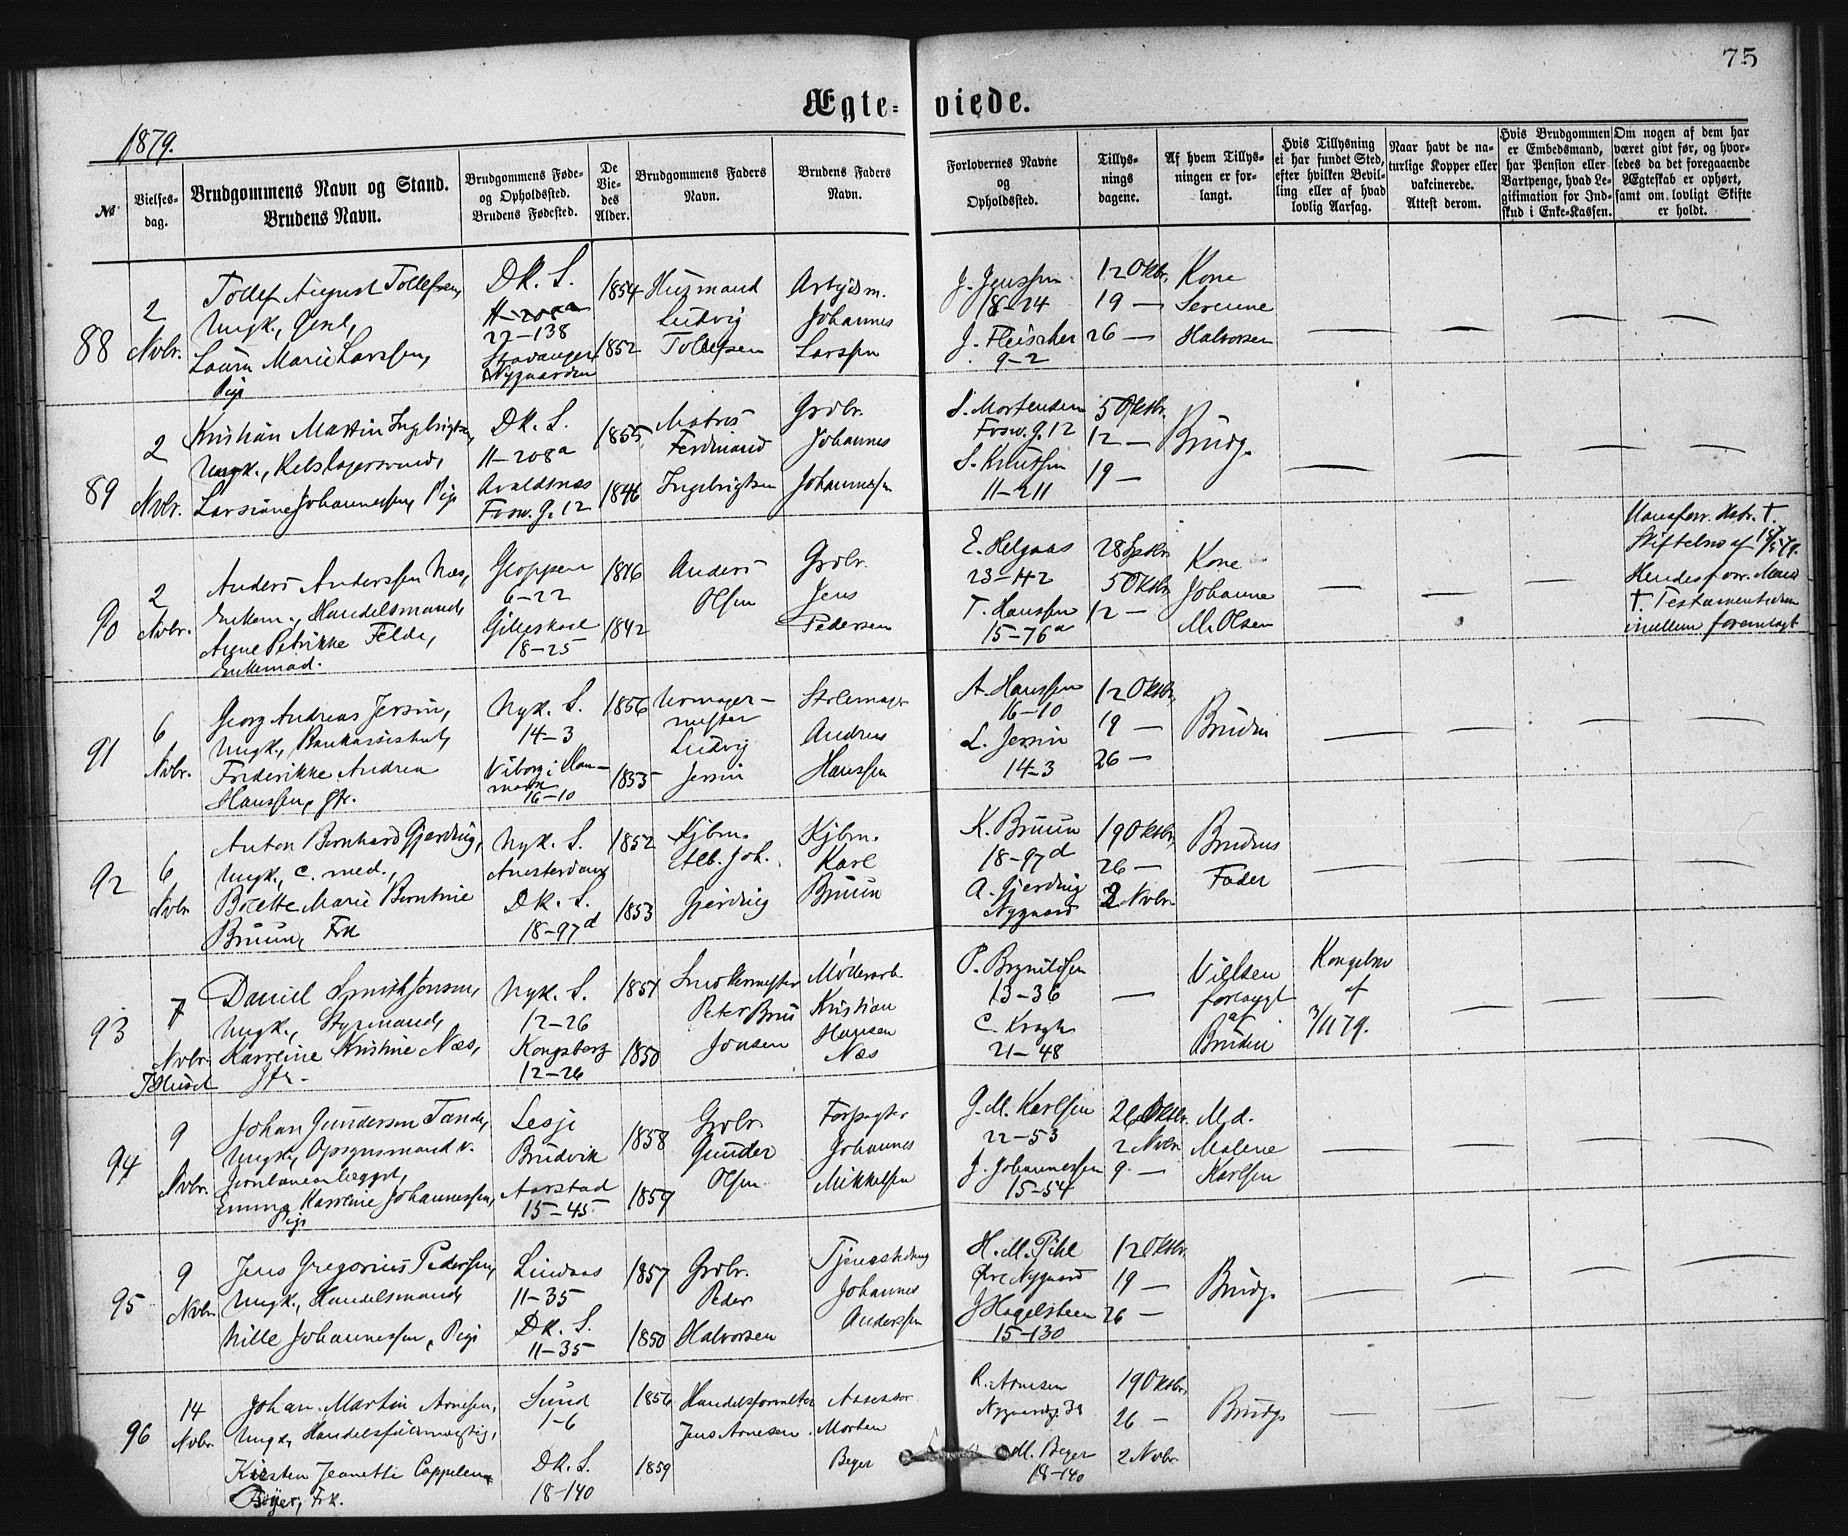 75
Ægte-viede.
1879.
№
Vielses-
dag.
Brudgommens Navn og Stand.
Brudens Navn.
Brudgommens Føde-
og Opholdssted.
Brudens Fødested.
De
Vie-
des
Alder.
Brudgommens Faders
Navn.
Brudens Faders
Navn.
Forlovernes Navne
og
Opholdssted.
Tillys-
nings
dagene.
Af hvem Tillys-
ningen er for-
langt.
Hvis Tillysning
ei har fundet Sted,
efter hvilken Bevil-
ling eller af hvad
lovlig Aarsag.
Naar havt de na-
turlige Kopper eller
vakcinerede.
Attest derom.
Hvis Brudgommen
er Embedsmand,
har Pension eller
Vartpenge, hvad Le-
gitimation for Ind-
skud i Enke-Kassen.
Om nogen af dem har
været givt før, og hvor-
ledes da det foregaaende
Ægteskab er ophørt,
samt om lovligt Skifte
er holdt.
88
2
Nvbr.
Tollef August Tollefsen,
Ungk.,
Laura Marie Larssen,
Pige
Dk. S.
11-208a
22-138
Stavanger
Nygaarden
1854
1852
Husmand
Ludvig
Tollefsen
Arbdsm.
Johannes
Larssen
J. Jenssen
18-24
J. Fleischer
9-2
12 Oktbr.
19 —
26 —
Kone
Serenne
Halvorsen
89
2
Nvbr.
Kristian Martin Ingebrigtsen,
Ungk., Rebslagersvend,
Larsine Johannessen, Pige
Dk. S.
11-208a
Avaldsnes
Frsw. g. 12
1855
1846
Matros
Ferdinand
Ingebrigtsen
Grdbr.
Johannes
Johannessen
S. Mortensen
Frsw. g. 12
S. Knutsen
11-211
5 Oktbr.
12 —
19 —
Brudg.
90
2
Nvbr.
Anders Anderssen Næs,
Enkem., Handelsmand,
Anne Petrikke Felde,
Enkemad.
Gloppen
6-22
Gildeskaal
18-25
1816
1842
Anders
Olsen
Grdbr.
Jens
Pedersen
E. Helgaas
23-42
T. Hanssen
15-76a
28 Sptbr.
5 Oktbr.
12 —
Kone
Johanne
M. Olsen
Hans forr. Hstr. †.
Skiftebrev af
Hendes forr. Mand
†. Testamentet
imellem foreviist
91
6
Nvbr.
Georg Andreas Jersin,
Ungk., Bankassistent,
Frederikke Andrea
Hanssen, Jfr.
Nyk. S.
14-3
Viborg i Dan-
mark
16-10
1856
1853
Urmager-
mester
Ludvig
Jersin
Stolemager
Andreas
Hanssen
A. Hanssen
16-10
L. Jersin
14-3
12 Oktbr.
19 —
26 —
Bruden
92
6
Nvbr
Anton Bernhard Gjerding,
Ungk., c. med.,
Bolette Marie Berntine
Bruun, Frk
Nyk. S.
Amsterdam
Dk. S.
18-97d
1852
1853
Kjbm.
Alb. Joh.
Gjerding
Kjbm.
Karl
Bruun
K. Bruun
18-97d
A. Gjerding
Nygaard
19 Oktbr.
26 —
2 Nvbr
Brudens
Fader
93
7
Nvbr.
I Huset
Daniel Smith Jonsen,
Ungk., Styrmand,
Karoline Kristine Næs,
Jfr.
Nyk. S.
12-26
Kongsberg
12-26
1851
1850
Snedkermester
Peter Brus
Jonsen
Møllerarb.
Kristian
Hansen
Næs
P. Brynildsen
13-36
C. Krogh
21-48
—
Vielsen
forlangt
af
Bruden
Kongebrev
af
3/11 79.
94
9
Nvbr.
Johan Gundersen Tande,
Ungk., Opsynsmand v.
Jernbaneanlægget,
Emma Karoline Johannessen,
Pige
Lesje
Brudvik
Aarstad
15-45
1858
1859
Grdbr
Gunder
Olsen
Forpagter
Johannes
Mikkelsen
J. M. Karlsen
22-53
J. Johannessen
15-54
26 Oktbr.
2 Nvbr
9 —
M. d.
Malene
Karlsen
95
9
Nvbr
Jens Gregorius Pederssen,
Ungk., Handelsmand,
Nille Johannessen, Pige
Lindaas
11-35
Dk. S.
11-35
1857
1850
Grdbr.
Peder
Halvorsen
Tjenestedreng
Johannes
Anderssen
H. M. Pihl
Øvre Nygaard
J Hagelsteen
15-130
12 Oktbr.
19 —
26 —
Brudg.
96
14
Nvbr
Johan Martin Arnesen,
Ungk, Handelsfuldmægtig,
Kirsten Jeanette Cappelen
Beyer, Frk.
Sund
1-6
Dk. S.
18-140
1856
1859
Handelsforvalter
Jens Arnesen
Assessor
Morten
Beyer
R. Arnesen
Nygaardsg. 38
M. Beyer
18-140
19 Oktbr.
26 —
2 Nvbr
Brudg.